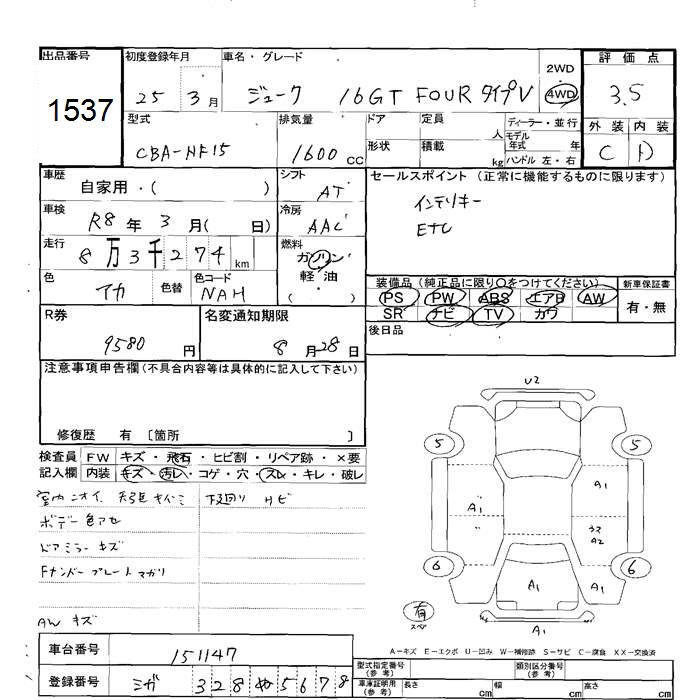 出品番号
1537
初度登録年月
25年 3月
車名・グレード
ジューク 16GT FOUR タイプV
2WD
4WD
評価点
3.5
外装 内装
C D
型式
CBA-NF15
排気量
1600 CC
ドア
形状
定員
人
積載
kg
ディーラー・並行
モデル年式 年
ハンドル 左・右
車歴
自家用・( )
シフト
AT
セールスポイント (正常に機能するものに限ります)
インテリキー
ETC
車検
R8年 3月( 日)
冷房
AAC
走行
8万3千274km
燃料
ガソリン
軽油
( )
色
アカ
色替
色コード
NAH
装備品 (純正品に限り○をつけてください)
PS PW ABS エアB AW
SR ナビ TV カワ
新車保証書
有・無
R券
9580円
名変通知期限
8月28日
後日品
注意事項申告欄(不具合内容等は具体的に記入して下さい)
修復歴 有 〔箇所 〕
検査員
記入欄
FW キズ・飛石・ヒビ割・リペア跡・×要
内装 キズ・汚レ・コゲ・穴・スレ・キレ・破レ
室内ニオイ 天張キバミ 下廻りサビ
ボデー色アセ
ドアミラーキズ
Fナンバープレートマガリ
AWキズ
U2
5
5
A1
A1
A2
6
6
A1
A1
A1
有
スペア
A−キズ E−エクボ U−凹み W−補修跡 S−サビ C−腐食 XX−交換済
車台番号
151147
登録番号
328 ぬ 5678
型式指定番号
(参考)
類別区分番号
(参考)
車庫証明用
(参考)
長さ cm
幅 cm
高さ cm